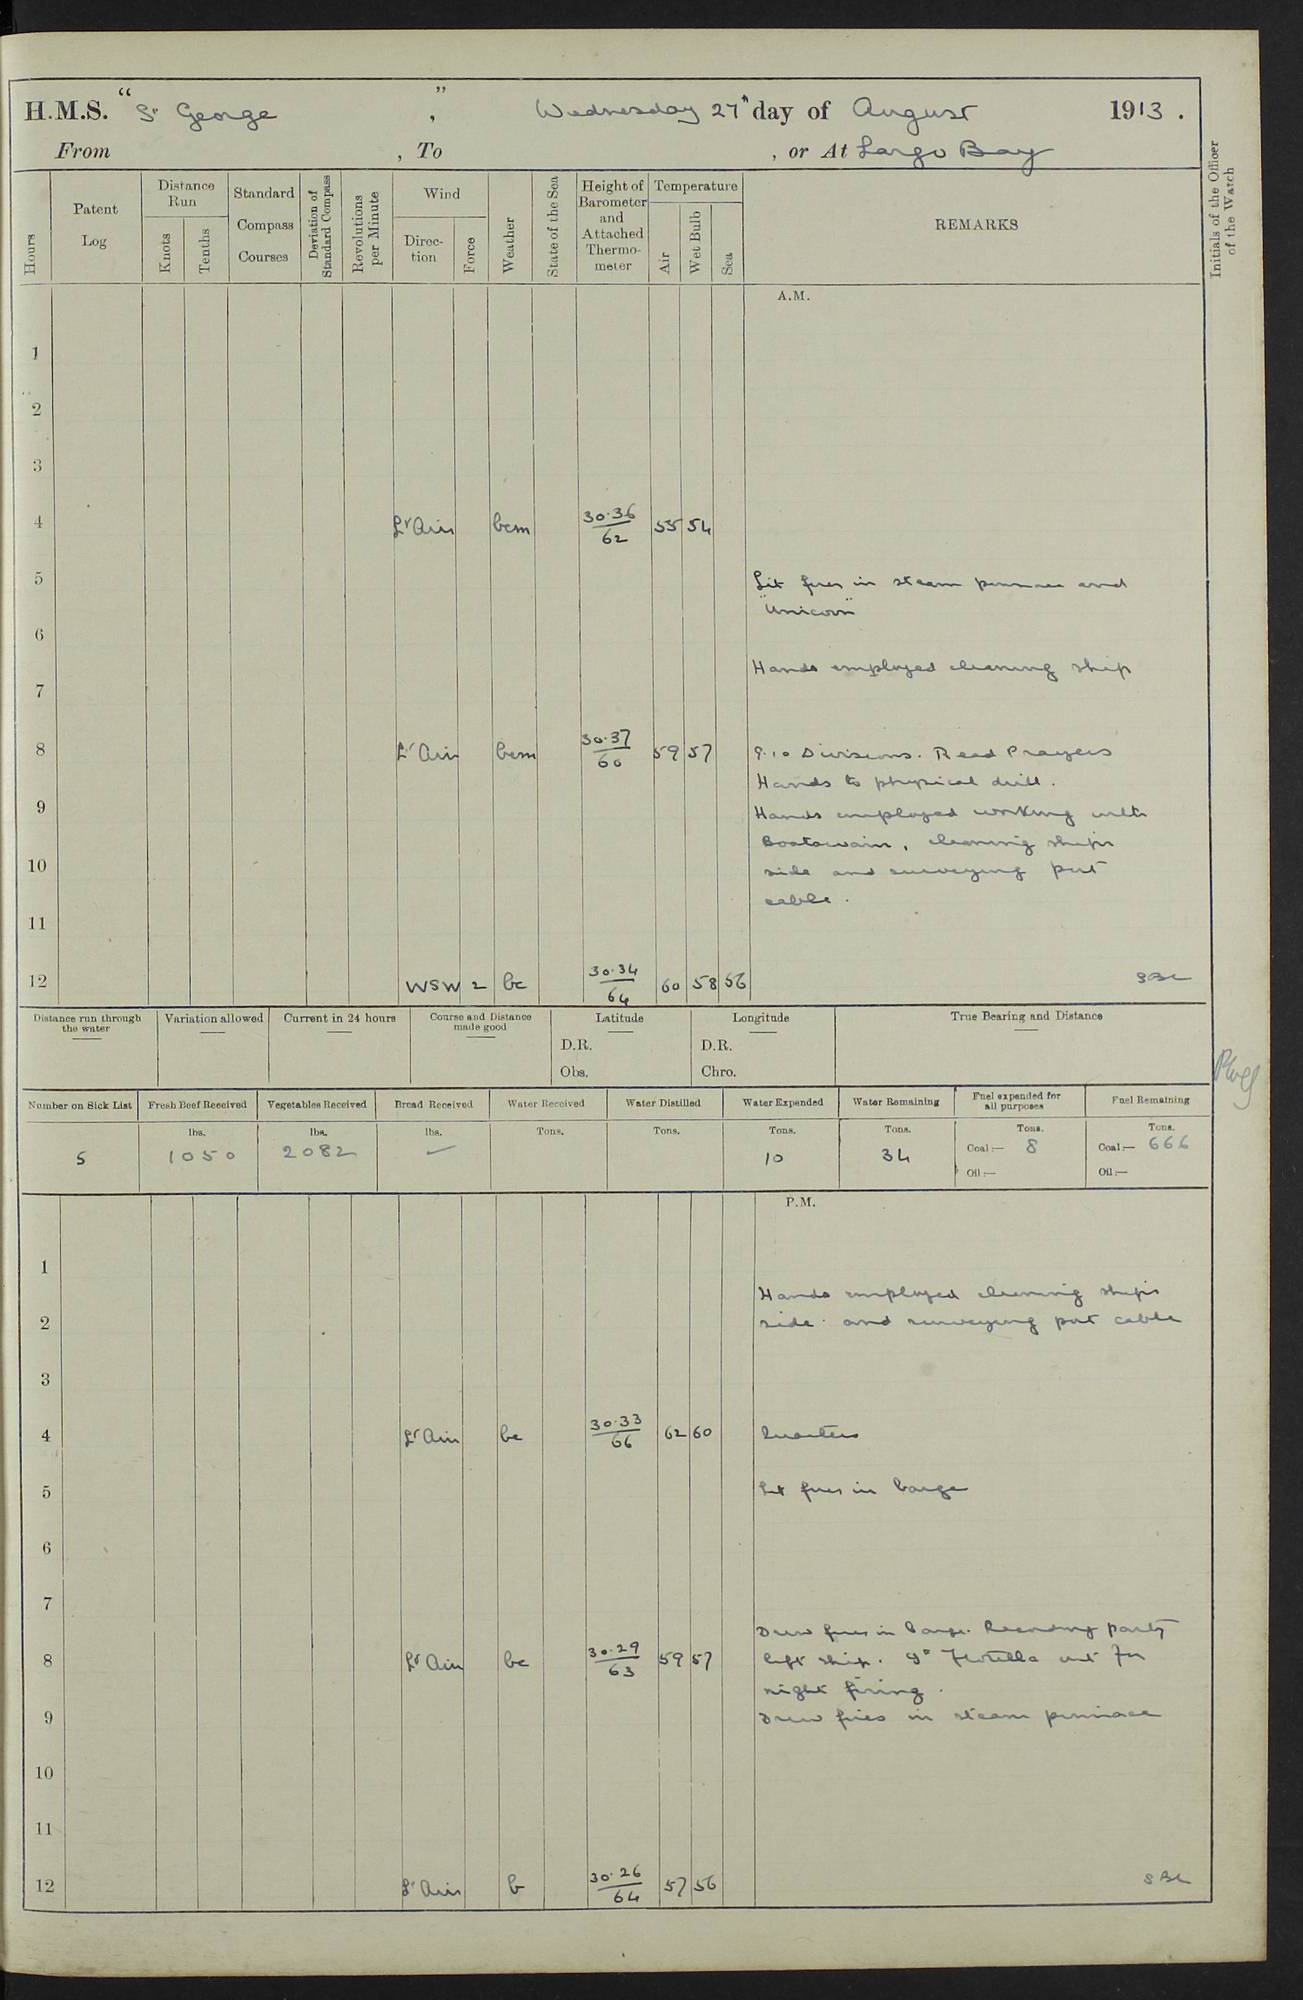 H.M.S. "St George", Wednesday 27th day of August 1913.
From , To , or At Largo Bay
Hours
Patent Log
Distance Run
Knots
Tenths
Standard Compass Courses
Deviation of Standard Compass
Revolutions per Minute
Wind
Direc-tion
Force
Weather
State of the Sea
Height of Barometer and Attached Thermo-meter
Temperature
Air
Wet Bulb
Sea
REMARKS
Initials of the Officer of the Watch
A.M.
1
2
3
4 Lt Airs bcm 30.36/62 55 54
5 Lit fires in steam pinnace and
"Unicorn"
6
Hands employed cleaning ship
7
8 Lt Airs bcm 30.37/60 59 57 9.10 Divisions. Read Prayers
Hands to physical drill.
9 Hands employed working with
Boatswain, cleaning ships
10 side and surveying port
cable.
11
12 WSW 2 bc 30.34/64 60 58 56 SBL
Distance run through the water
Variation allowed
Current in 24 hours
Course and Distance made good
Latitude
D.R.
Obs.
Longitude
D.R.
Chro.
True Bearing and Distance
Number on Sick List 5
Fresh Beef Received lbs. 1050
Vegetables Received lbs. 2082
Bread Received lbs. ✓
Water Received Tons.
Water Distilled Tons.
Water Expended Tons. 10
Water Remaining Tons. 34
Fuel expended for all purposes Tons. Coal:— 8 Oil:—
Fuel Remaining Tons. Coal:— 666 Oil:—
P.M.
1
Hands employed cleaning ships
2 side and surveying port cable
3
4 Lt Airs bc 30.33/66 62 60 Quarters
5 Lit fires in barge
6
7
Drew fires in barge. party
8 Lt Airs bc 30.29/63 59 57 left ship. 9th Flotilla out for
night firing.
9 Drew fires in steam pinnace
10
11
12 Lt Airs b 30.26/64 57 56 SBL